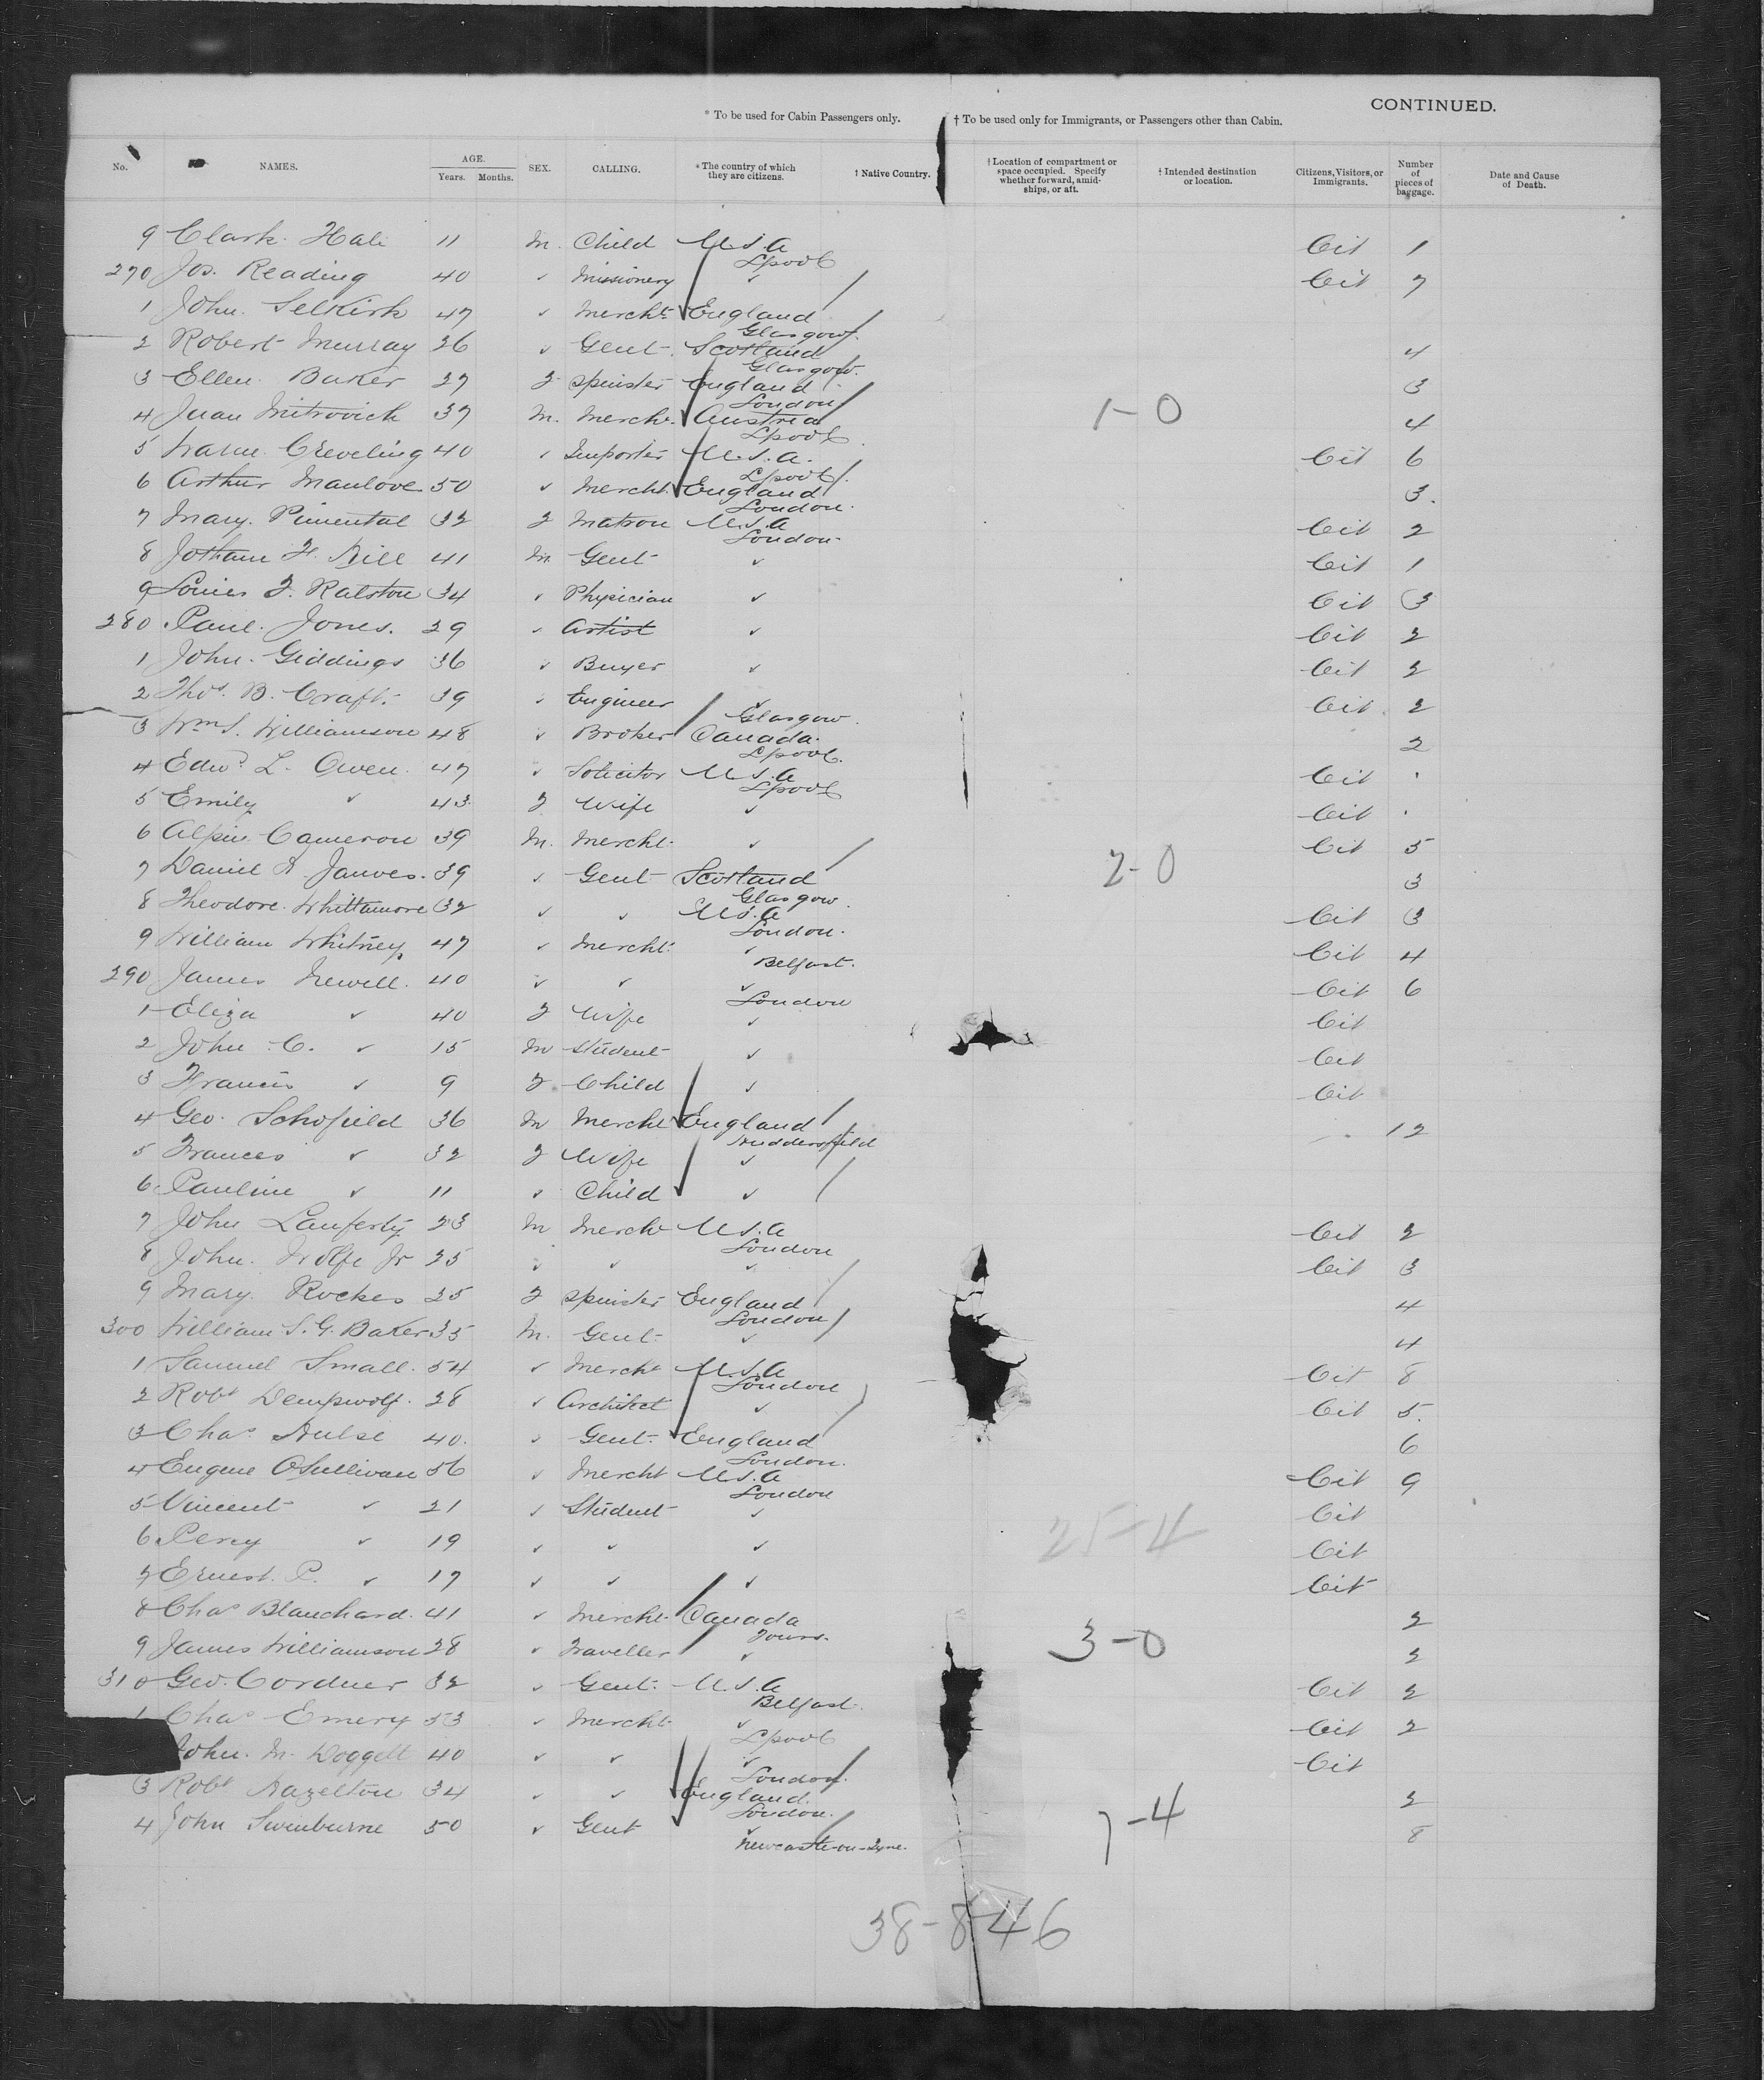 CONTINUED.
* To be used for Cabin Passengers only. † To be used only for Immigrants, or Passengers other than Cabin.
No. NAMES. AGE. Years. Months. SEX. CALLING. * The country of which they are citizens. † Native Country. † Location of compartment or space occupied. Specify whether forward, amidships, or aft. † Intended destination or location. Citizens, Visitors, or Immigrants. Number of pieces of baggage. Date and Cause of Death.
9 Clark Hale 11 M. Child U.S.A Cit 1
Lpool
270 Jos. Reading 40 ✓ Missionery ✓ Cit 7
1 John Selkirk 47 ✓ Mercht England
Glasgow
2 Robert Murray 26 ✓ Gent Scotland 4
Glasgow.
3 Ellen Baker 27 F Spinster England 3
London
4 Juan Mitrovich 37 M. Mercht Austria 1-0 4
Lpool
5 Creveling 40 ✓ Importer U.S.A. Cit 6
Lpool
6 Arthur Manlove 50 ✓ Mercht England 3.
London.
7 Mary Pimental 32 F Matron U.S.A Cit 2
London
8 Jotham H. Bill 41 M. Gent ✓ Cit 1
9 Louies F. Ralston 34 ✓ Physician ✓ Cit 3
280 Paul Jones. 29 ✓ Artist ✓ Cit 2
1 John Giddings 36 ✓ Buyer ✓ Cit 2
2 Thos. B. Craft. 39 ✓ Engineer ✓ Cit 2
Glasgow.
3 Wm S. Williamson 48 ✓ Broker Canada. 2
Lpool.
4 Edwd L. Owen 47 ✓ Solicitor U.S.A Cit .
Lpool
5 Emily ✓ 43 F Wife ✓ Cit .
6 Alpin Cameron 39 M. Mercht ✓ Cit 5
7 Daniel A. Janves. 39 ✓ Gent Scotland 2-0 3
Glasgow.
8 Theodore Whittamore 32 ✓ ✓ U.S.A Cit 3
London.
9 William Whitney 47 ✓ Mercht ✓ Cit 4
Belfast.
290 James Newell. 40 ✓ ✓ ✓ Cit 6
London
1 Eliza ✓ 40 F Wife ✓ Cit
2 John C. ✓ 15 M Student ✓ Cit
3 Francis ✓ 9 F Child ✓ Cit
4 Geo. Schofield 36 M Mercht England 12
Huddersfield
5 Frances ✓ 32 F Wife ✓
6 Pauline ✓ 11 ✓ Child ✓
7 John Lauferty 23 M Mercht U.S.A Cit 2
London
8 John Wolfe Jr 25 ✓ ✓ ✓ Cit 3
9 Mary Rockes 25 F Spinster England 4
London
300 William S. G. Baker 35 M. Gent ✓ 4
1 Samuel Small. 54 ✓ Mercht U.S.A Cit 8
London
2 Robt Dempwolf. 28 ✓ Architect ✓ Cit 5.
3 Chas Hulse 40. ✓ Gent. England 6
London.
4 Eugene O'Sullivan 56 ✓ Mercht U.S.A Cit 9
London
5 Vincent ✓ 21 ✓ Student ✓ Cit
25-4
6 Percy ✓ 19 ✓ ✓ ✓ Cit
7 Ernest P. ✓ 17 ✓ ✓ ✓ Cit
8 Chas Blanchard. 41 ✓ Mercht Canada 2
Tours.
9 James Williamson 28 ✓ Traveller ✓ 3-0 2
310 Geo. Cordner 32 ✓ Gent. U.S.A Cit 2
Belfast.
1 Chas Emery 53 ✓ Mercht ✓ Cit 2
Lpool
John M. Doggett 40 ✓ ✓ ✓ Cit
London.
3 Robt Hazelton 34 ✓ ✓ England. 2
London.
4 John Swinburne 50 ✓ Gent ✓ 7-4 8
Newcastle-on-Tyne.
38-8-46